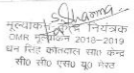 Sharma
मूल्यांकन नियंत्रक
OMR मूल्यांकन 2018-2019
धन सिंह कोतवाल सा० केन्द्र
सी० सी० एस० यू० मेरठ